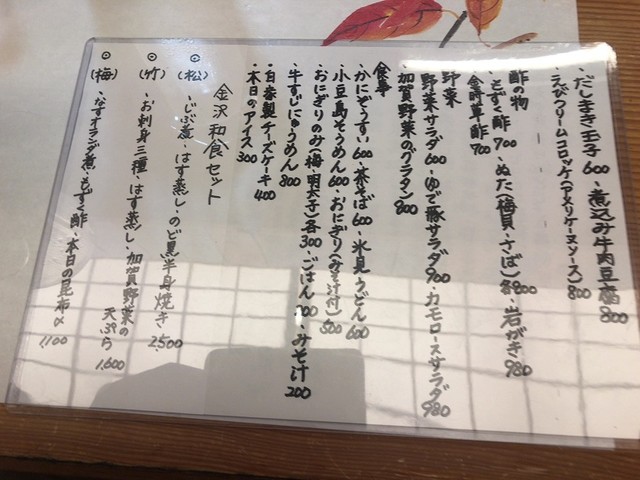 ・だしまき玉子 600 ・煮込み牛肉豆腐 800
・えびクリームコロッケ(アメリケーヌソース) 800
酢の物
・もずく酢 700 ・ぬた(梅貝・さば)各800 ・岩がき 980
700
野菜
野菜サラダ 600 ・ゆで豚サラダ 900 カモロースサラダ 980
・加賀野菜のグラタン 800
食事
・かにぞうすい 600 ・茶そば 600 ・氷見うどん 600
・小豆島そうめん 600 ・おにぎり(みそ汁付) 500
・おにぎりのみ(梅・明太子)各300 ・ごはん ・みそ汁 200
・牛すじにゅうめん 800
・自家製チーズケーキ 400
・本日のアイス 300
金沢和食セット
(松)
・じぶ煮・はす蒸し・のど黒半身焼き 2,500
(竹)
・お刺身三種・はす蒸し・加賀野菜の天ぷら 1,600
(梅)
・なすオランダ煮・もずく酢・本日の昆布〆 1,100